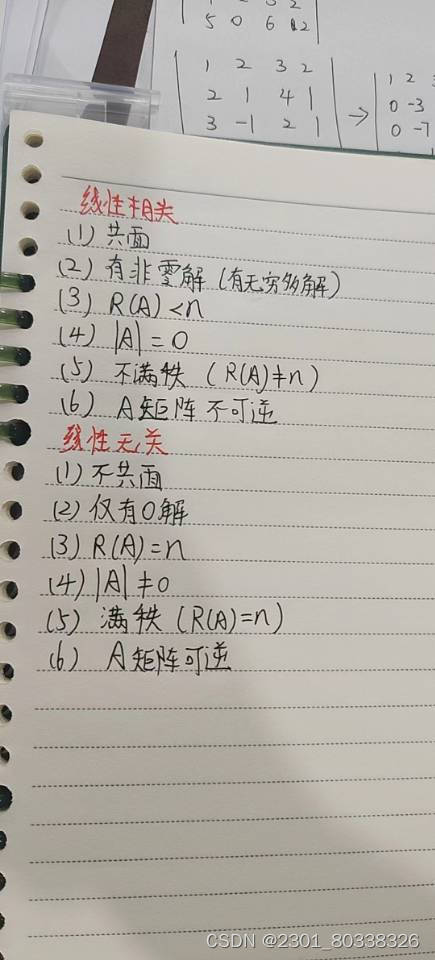 5 0 6 12
1 2 3 2
2 1 4 1
3 -1 2 1
→
1 2
0 -3
0 -7
线性相关
(1) 共面
(2) 有非零解 (有无穷多解)
(3) R(A)<n
(4) |A|=0
(5) 不满秩 (R(A)≠n)
(6) A矩阵不可逆
线性无关
(1) 不共面
(2) 仅有0解
(3) R(A)=n
(4) |A|≠0
(5) 满秩 (R(A)=n)
(6) A矩阵可逆
CSDN @2301_80338326